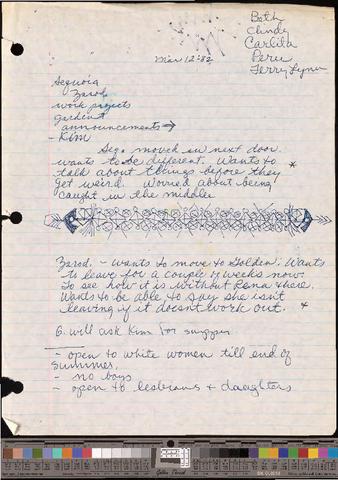 Beth
Cindy
Carlita
Peru
Terry Lynn
Mar 12 '82
Sequoia
Zarod
work projects
gardening
announcements →
- Kim
Seq. moved in next door.
wants to be different. Wants to *
talk about things before they
get weird. Worried about being
caught in the middle
Zarod. - Wants to move to Golden. Wants
to leave for a couple of weeks now
to see how it is without Rena there.
Wants to be able to say she isn't
leaving if it doesn't work out.
G. will ask Kim for
- open to white women till end of
summer.
- no boys
- open to lesbians + daughters